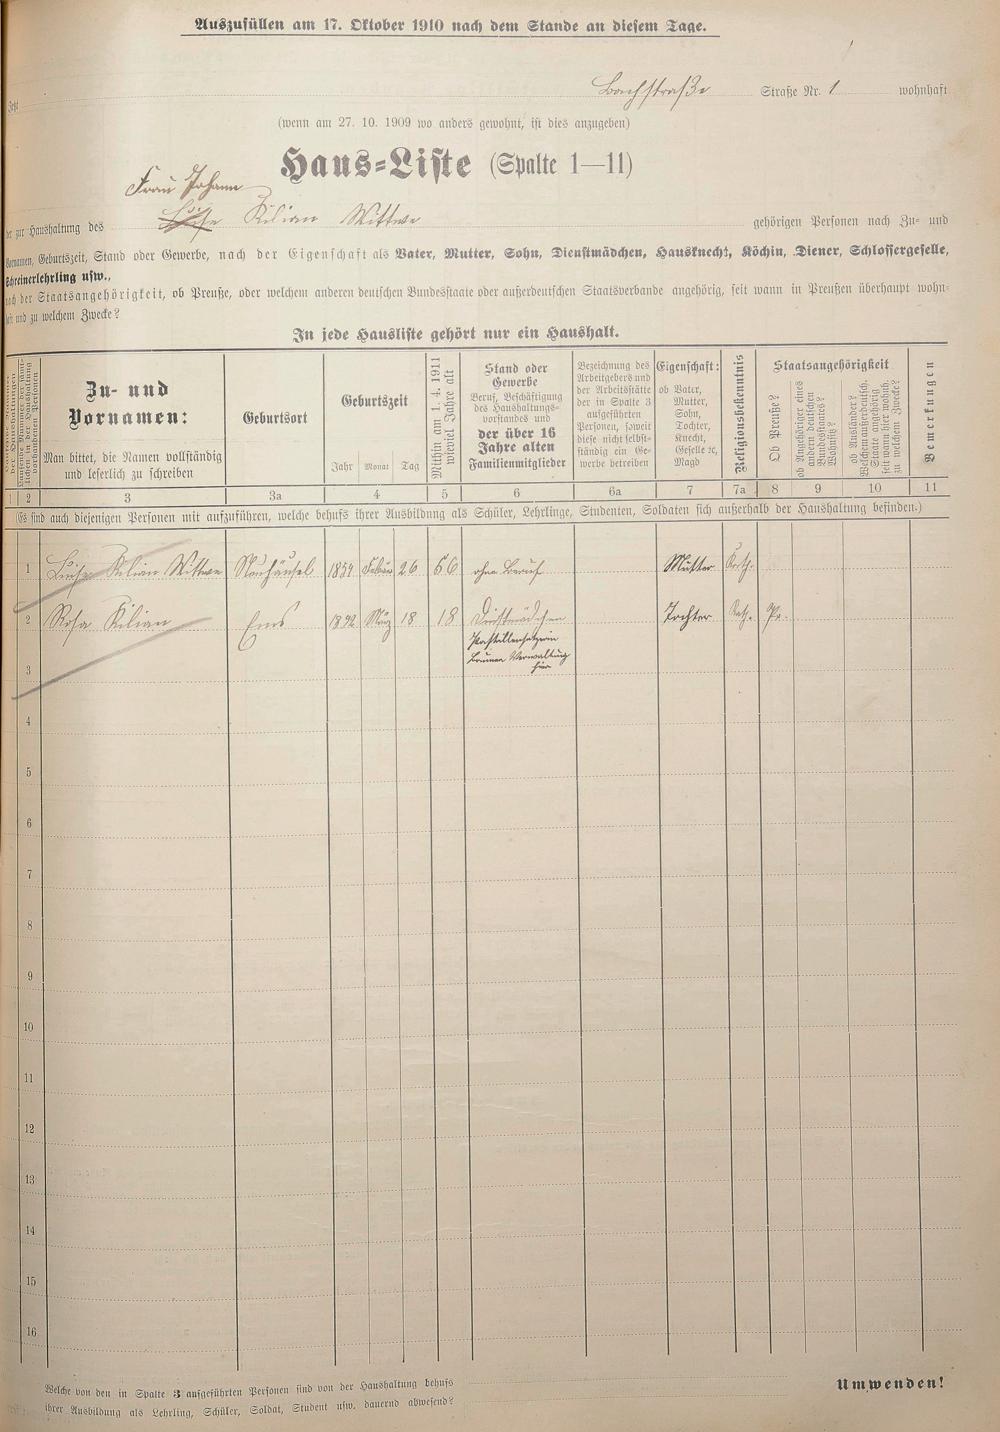 Auszufüllen am 17. Oktober 1910 nach dem Stande an diesem Tage.
Jetzt Bachstraße Straße Nr. 1 wohnhaft
(wenn am 27. 10. 1909 wo anders gewohnt, ist dies anzugeben)
Haus-Liste (Spalte 1—11)
Frau Johann
der zur Haushaltung des Luise Kilian Wittwe gehörigen Personen nach Zu- und
Vornamen, Geburtszeit, Stand oder Gewerbe, nach der Eigenschaft als Vater, Mutter, Sohn, Dienstmädchen, Hausknecht, Köchin, Diener, Schlossergeselle,
Schreinerlehrling usw.,
nach der Staatsangehörigkeit, ob Preuße, oder welchem anderen deutschen Bundesstaate oder außerdeutschen Staatsverbande angehörig, seit wann in Preußen überhaupt wohn-
haft und zu welchem Zwecke?
In jede Hausliste gehört nur ein Haushalt.
Zu- und
Vornamen:
Man bittet, die Namen vollständig
und leserlich zu schreiben
Geburtsort
Geburtszeit
Jahr Monat Tag
Mithin am 1. 4. 1911
wieviel Jahre alt
Stand oder
Gewerbe
Beruf, Beschäftigung
des Haushaltungs-
vorstandes und
der über 16
Jahre alten
Familienmitglieder
Bezeichnung des
Arbeitgebers und
der Arbeitsstätte
der in Spalte 3
aufgeführten
Personen, soweit
diese nicht selbst-
ständig ein Ge-
werbe betreiben
Eigenschaft:
ob Vater,
Mutter,
Sohn,
Tochter,
Knecht,
Geselle ꝛc,
Magd
Religionsbekenntnis
Staatsangehörigkeit
Ob Preuße?
ob Angehöriger eines
andern deutschen
Bundesstaates?
Wohnsitz?
ob Ausländer?
Welchem außerdeutsch.
Staate angehörig
seit wann hier wohnh.
zu welchem Zwecke?
Bemerkungen
1 2 3 3a 4 5 6 6a 7 7a 8 9 10 11
(Es sind auch diejenigen Personen mit aufzuführen, welche behufs ihrer Ausbildung als Schüler, Lehrlinge, Studenten, Soldaten sich außerhalb der Haushaltung befinden.)
1 Luise Kilian Wittwe Neuhäusel 1854 Februar 26 56 ohne Beruf Mutter Kath.
2 Rosa Kilian Ems 1892 März 18 18 Dienstmädchen Tochter Kath. Pr.
Pastillensetzerin
Brunnen Verwaltung
hier
3
4
5
6
7
8
9
10
11
12
13
14
15
16
Welche von den in Spalte 3 aufgeführten Personen sind von der Haushaltung behufs
ihrer Ausbildung als Lehrling, Schüler, Soldat, Student usw. dauernd abwesend?
Umwenden!